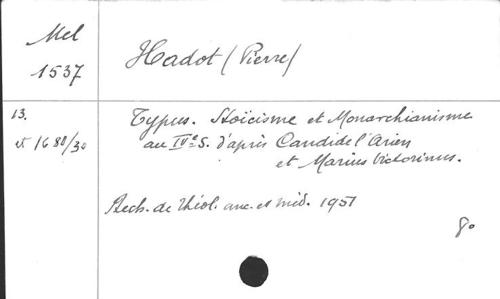 Mel
1537
Hadot (Pierre)
13.
et 1680/30
Typus. Stoïcisme et Monarchianisme
au IVe S. d'après Candide l'Arien
et Marius Victorinus.
Rech. de Théol. anc. et méd. 1951
8°